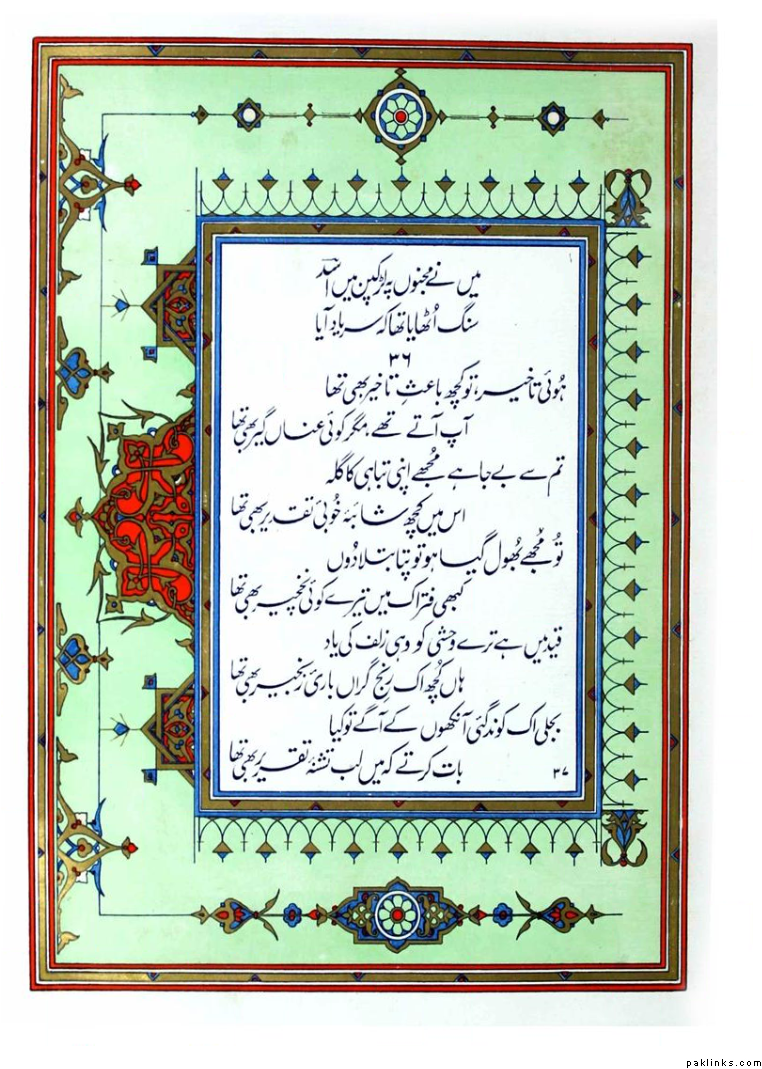 میں نے مجنوں پہ لڑکپن میں اسدؔ
سنگ اُٹھایا تھا کہ سر یاد آیا
۳۶
ہُوئی تاخیر، تو کچھ باعثِ تاخیر بھی تھا
آپ آتے تھے، مگر کوئی عناں گیر بھی تھا
تم سے بے جا ہے مُجھے اپنی تباہی کا گلہ
اس میں کچھ شائبۂ خُوبیٔ تقدیر بھی تھا
تُو مُجھے بُھول گیا ہو تو پتا بتلا دُوں
کبھی فتراک میں تیرے کوئی نخچیر بھی تھا
قید میں ہے ترے وحشی کو وہی زلف کی یاد
ہاں کُچھ اک رنجِ گراں باریٔ زنجیر بھی تھا
بجلی اک کوند گئی آنکھوں کے آگے تو کیا
بات کرتے کہ میں لب تشنۂ تقریر بھی تھا
۳۷
paklinks.com